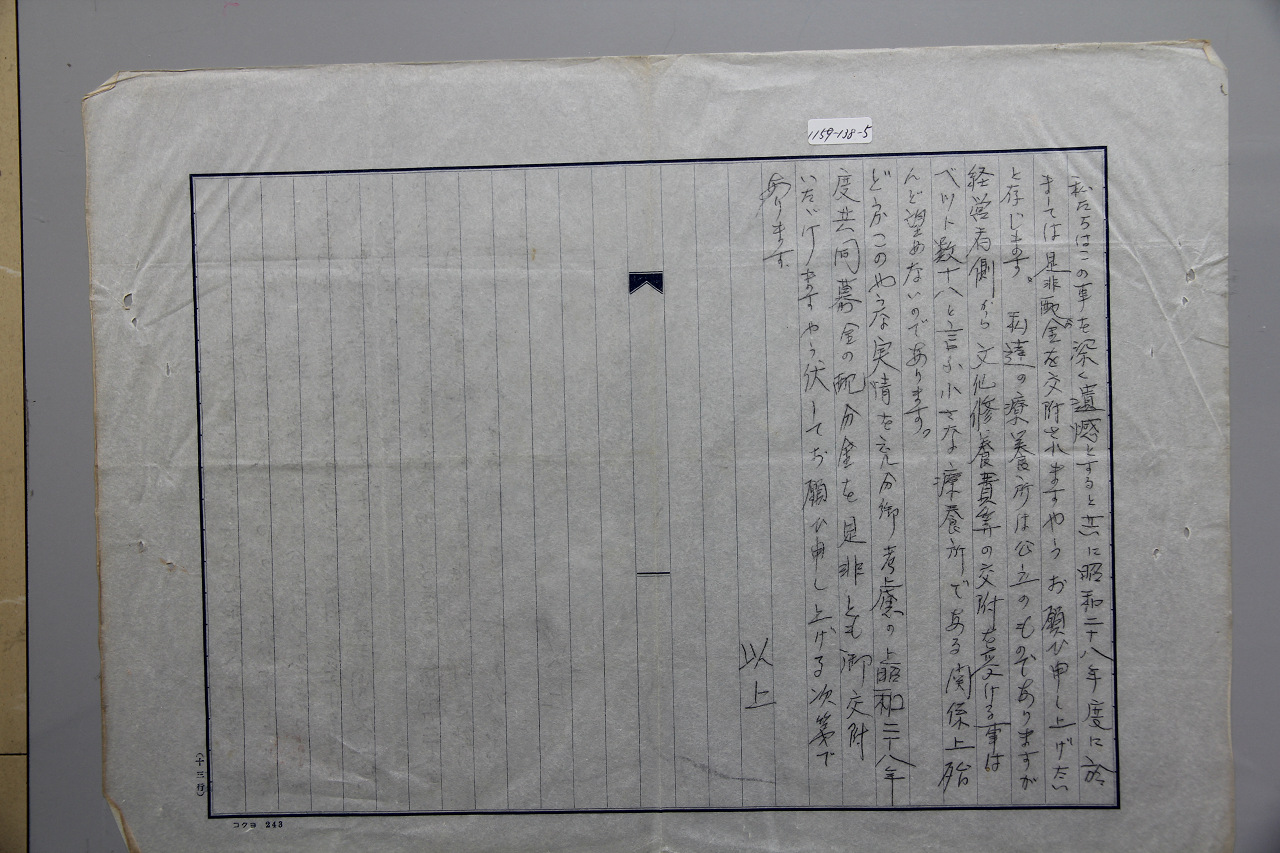 1159-138-5
私たちはこの事を深く遺憾とすると共に昭和二十八年度に於
ましては是非配分金を交附されますやうお願ひ申し上げたい
と存じます。私達の療養所は公立のものでありますが
経営者側から文化修養費等の交附を受ける事は
ベット数十八と言ふ小さな療養所である関係上殆
んど望めないのであります。
どうかこのやうな実情を充分御考慮の上昭和二十八年
度共同募金の配分金を是非とも御交附
いただけますやう伏してお願ひ申し上げる次第で
あります。
以上
(十三行)
コクヨ 243